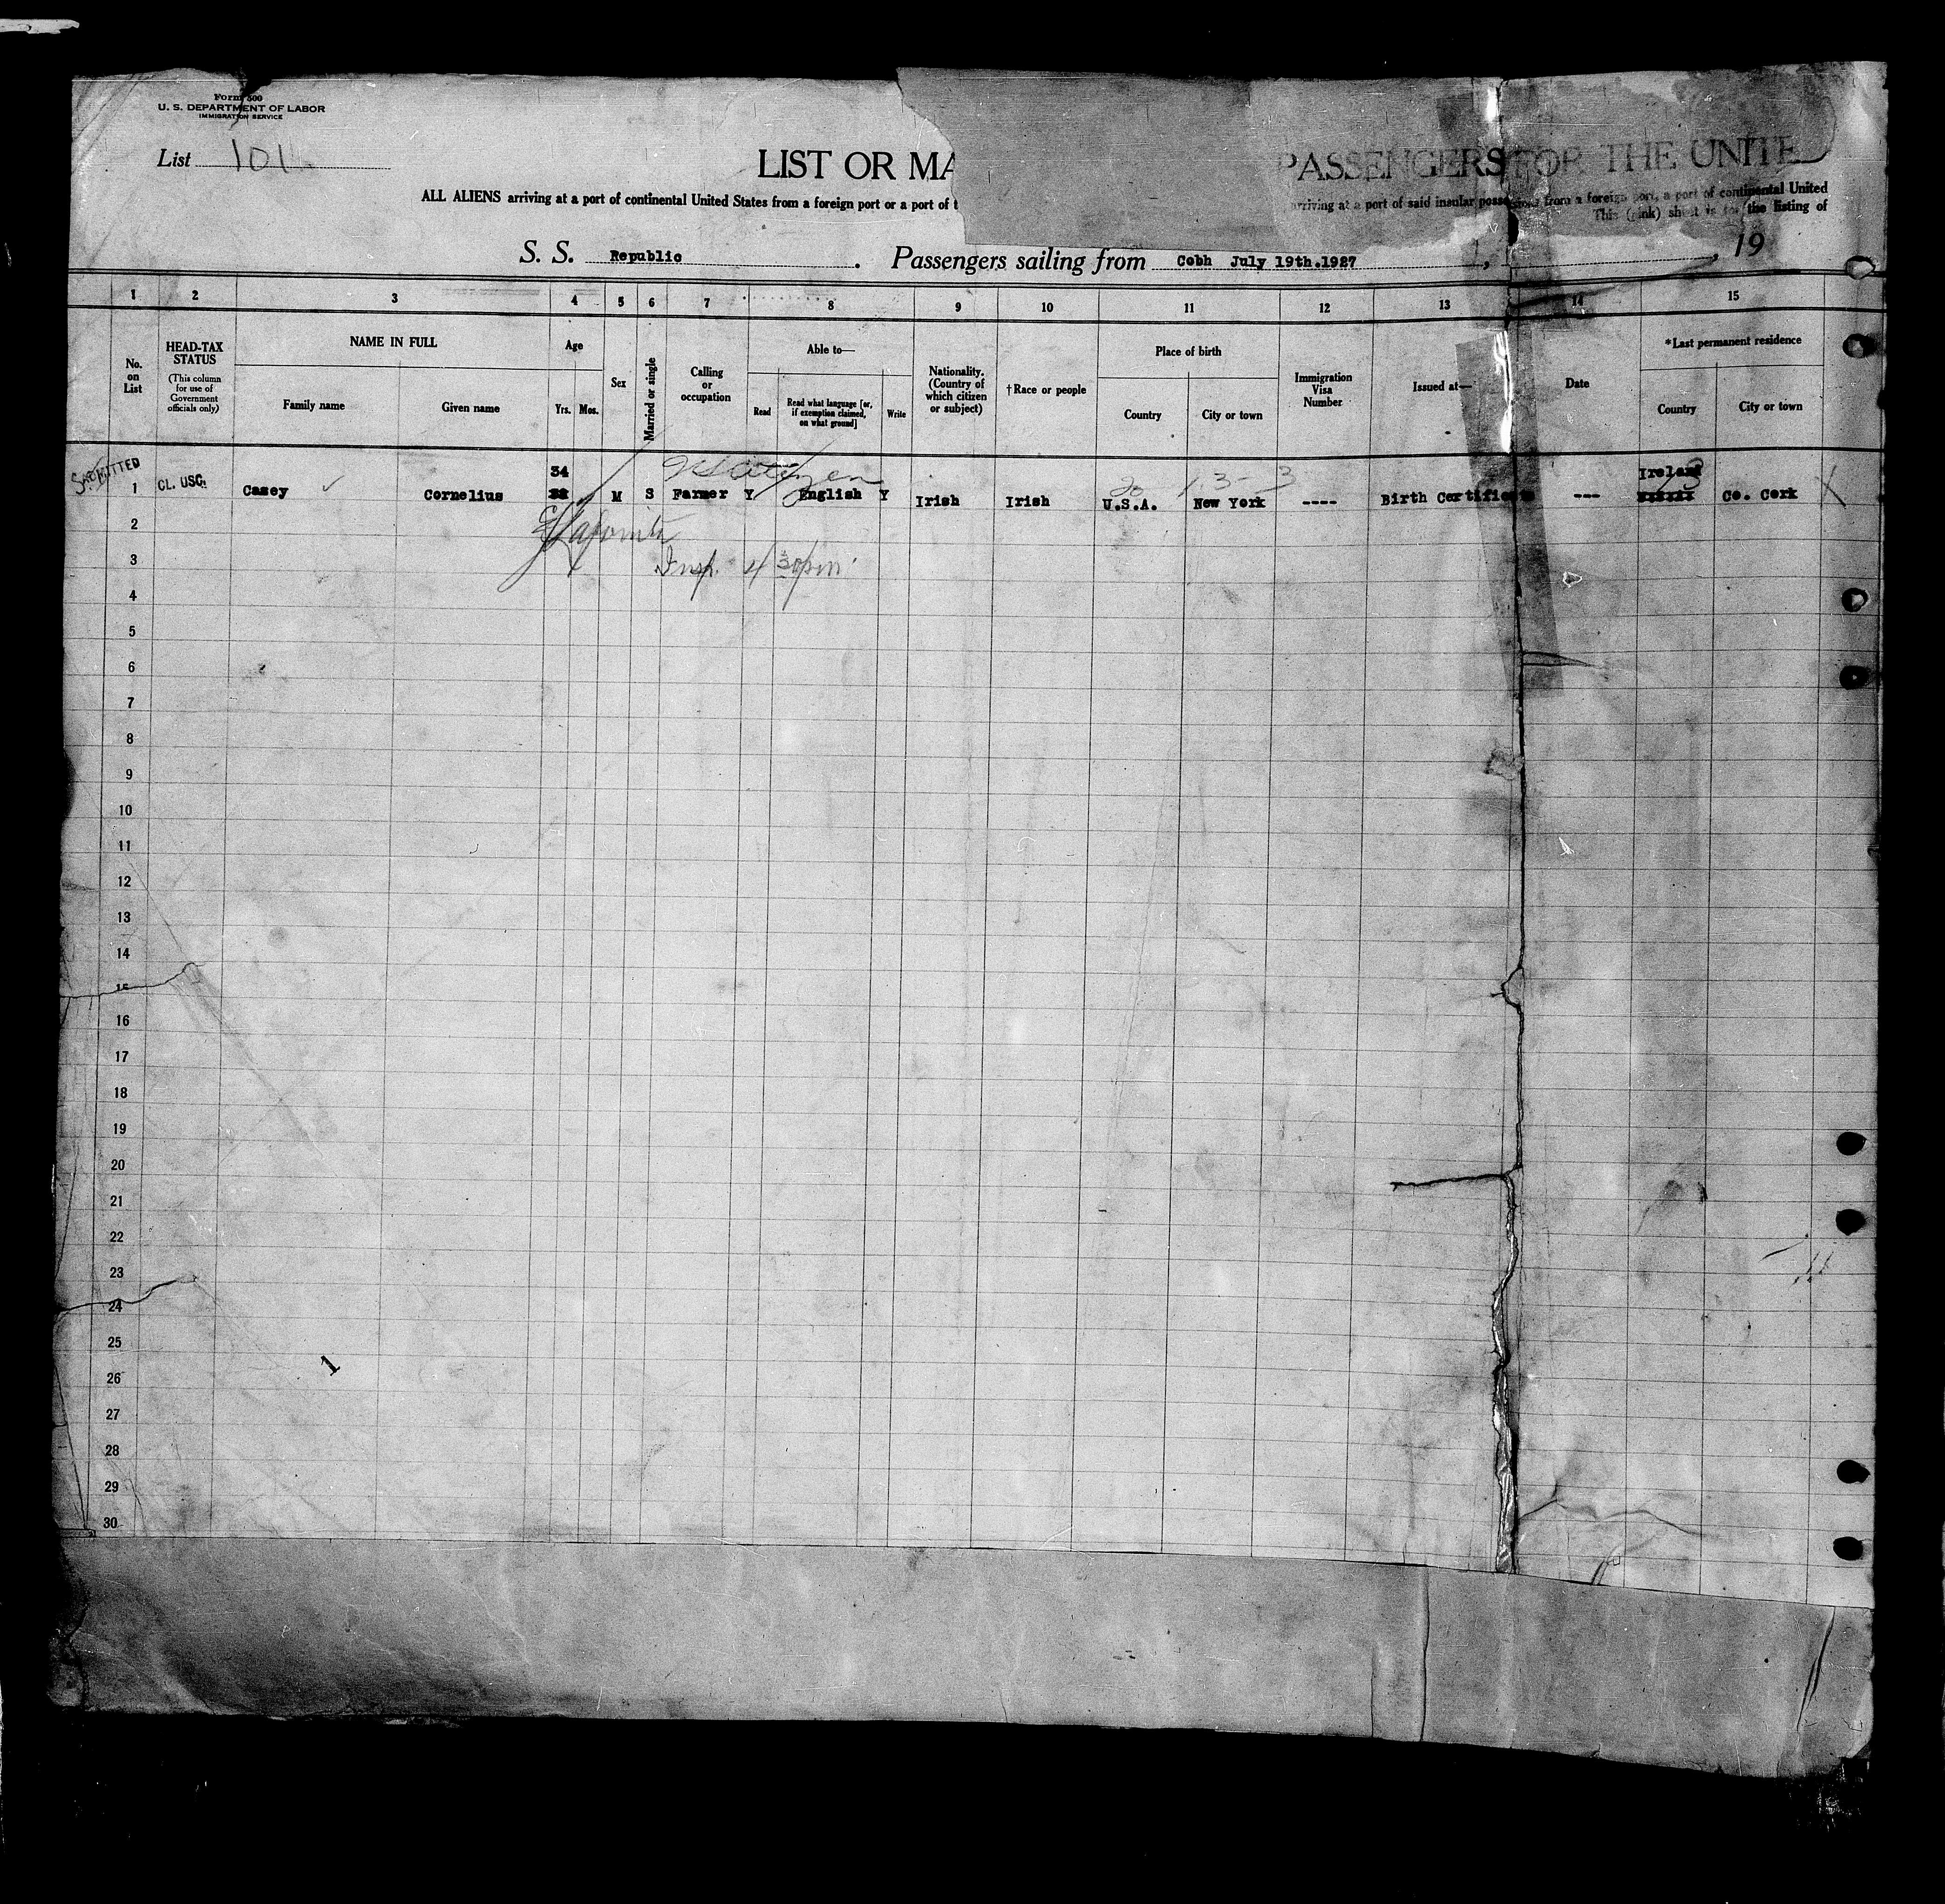 Form 500
U. S. DEPARTMENT OF LABOR
IMMIGRATION SERVICE
List 101
LIST OR MA PASSENGERS FOR THE UNITE
ALL ALIENS arriving at a port of continental United States from a foreign port or a port of t arriving at a port of said insular possessions from a foreign port, a port of continental United
This (pink) sheet is for the listing of
S. S. Republic . Passengers sailing from Cobh July 19th.1927 , , 19
1 2 3 4 5 6 7 8 9 10 11 12 13 14 15
No. on List
HEAD-TAX STATUS
(This column for use of Government officials only)
NAME IN FULL
Family name
Given name
Age
Yrs. Mos.
Sex
Married or single
Calling or occupation
Able to—
Read
Read what language [or, if exemption claimed, on what ground]
Write
Nationality. (Country of which citizen or subject)
†Race or people
Place of birth
Country
City or town
Immigration Visa Number
Issued at—
Date
*Last permanent residence
Country
City or town
ADMITTED
34 Ireland
1 CL. USC. Casey Cornelius M S Farmer Y English Y Irish Irish U.S.A. New York ---- Birth Certificate --- Co. Cork
2
Insp. 4 30 pm
3
4
5
6
7
8
9
10
11
12
13
14
15
16
17
18
19
20
21
22
23
24
25
1
26
27
28
29
30